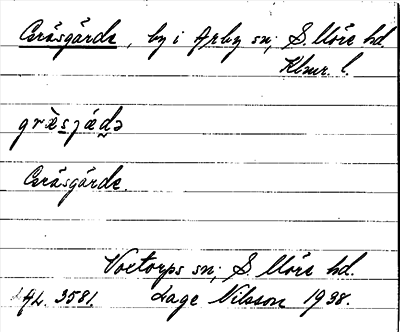 Gräsgärde, by i Arby sn; S. Möre hd.
Klmr. l.
grὰsjǽdə
Gräsgärde.
Voxtorps sn; S. Möre hd.
LAL. 3581. Lage Nilsson 1938.